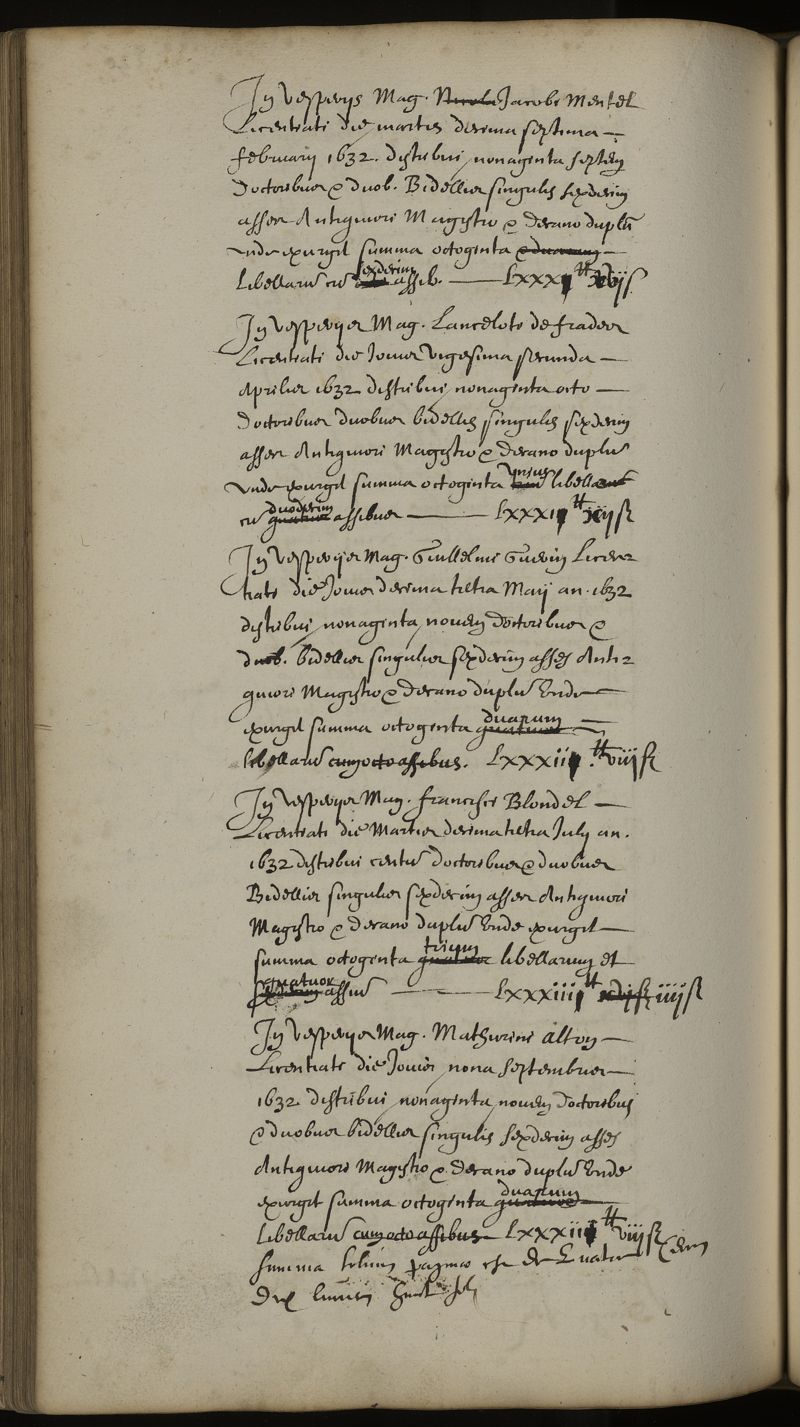 In vesperijs Mag. Nicolai Jacobi Mentel
Licentiati die martis decima septima
februarij 1632. distribui nonagenta septem
Doctoribus & duob. Bidellis singulis sexdecim
asses Antiquiori Magistro & decano duplũ
unde exurgit summa octogenta & duarum
libellarũ cũ sexdecim assib. — LXXX ₶ xvjs
In vesperijs Mag. Lanceloti de frades
Licentiati die Jovis vigesima secunda
Aprilis 1632 distribui nonagenta octo
Doctoribus duobus bidellis singulis sexdecim
asses Antiquiori Magistro & decano duplũ
unde exurgit summa octogenta unius libellarũ
cũ duodecim quatuor assibus — LXXXI ₶ xijs
In vesperijs Mag. Guillelmi Guerin Licen
tiati die Jovis decima tertia Maij an. 1632
distribui nonagenta novem doctoribus &
duob. bidellis singulis sexdecim asses Anti
quiori Magistro & decano duplũ unde
exurgit summa octogenta duarum quatuor
libellarũ cum octo assibus. LXXXII ₶ viijs
In vesperijs Mag. francisci Blondel
Licentiati die Martis decima tertia Julij an.
1632 distribui centũ doctoribus & duobus
Bidellis singulis sexdecim asses Antiquiori
Magistro & decano duplũ unde exurgit
summa octogenta trium quatuor libellarum et
quatuor sexdecim assiũ — LXXXIII ₶ iiijs
In vesperijs Mag. Mathurini Alton
Licentiati die Jovis nona septembris
1632 distribui nonagenta novem doctoribus
& duobus bidellis singulis sexdecim asses
Antiquiori Magistro & decano duplũ unde
exurgit summa octogenta duarum quatuor
libellarũ cum octo assibus LXXXII ₶ viijs
summa